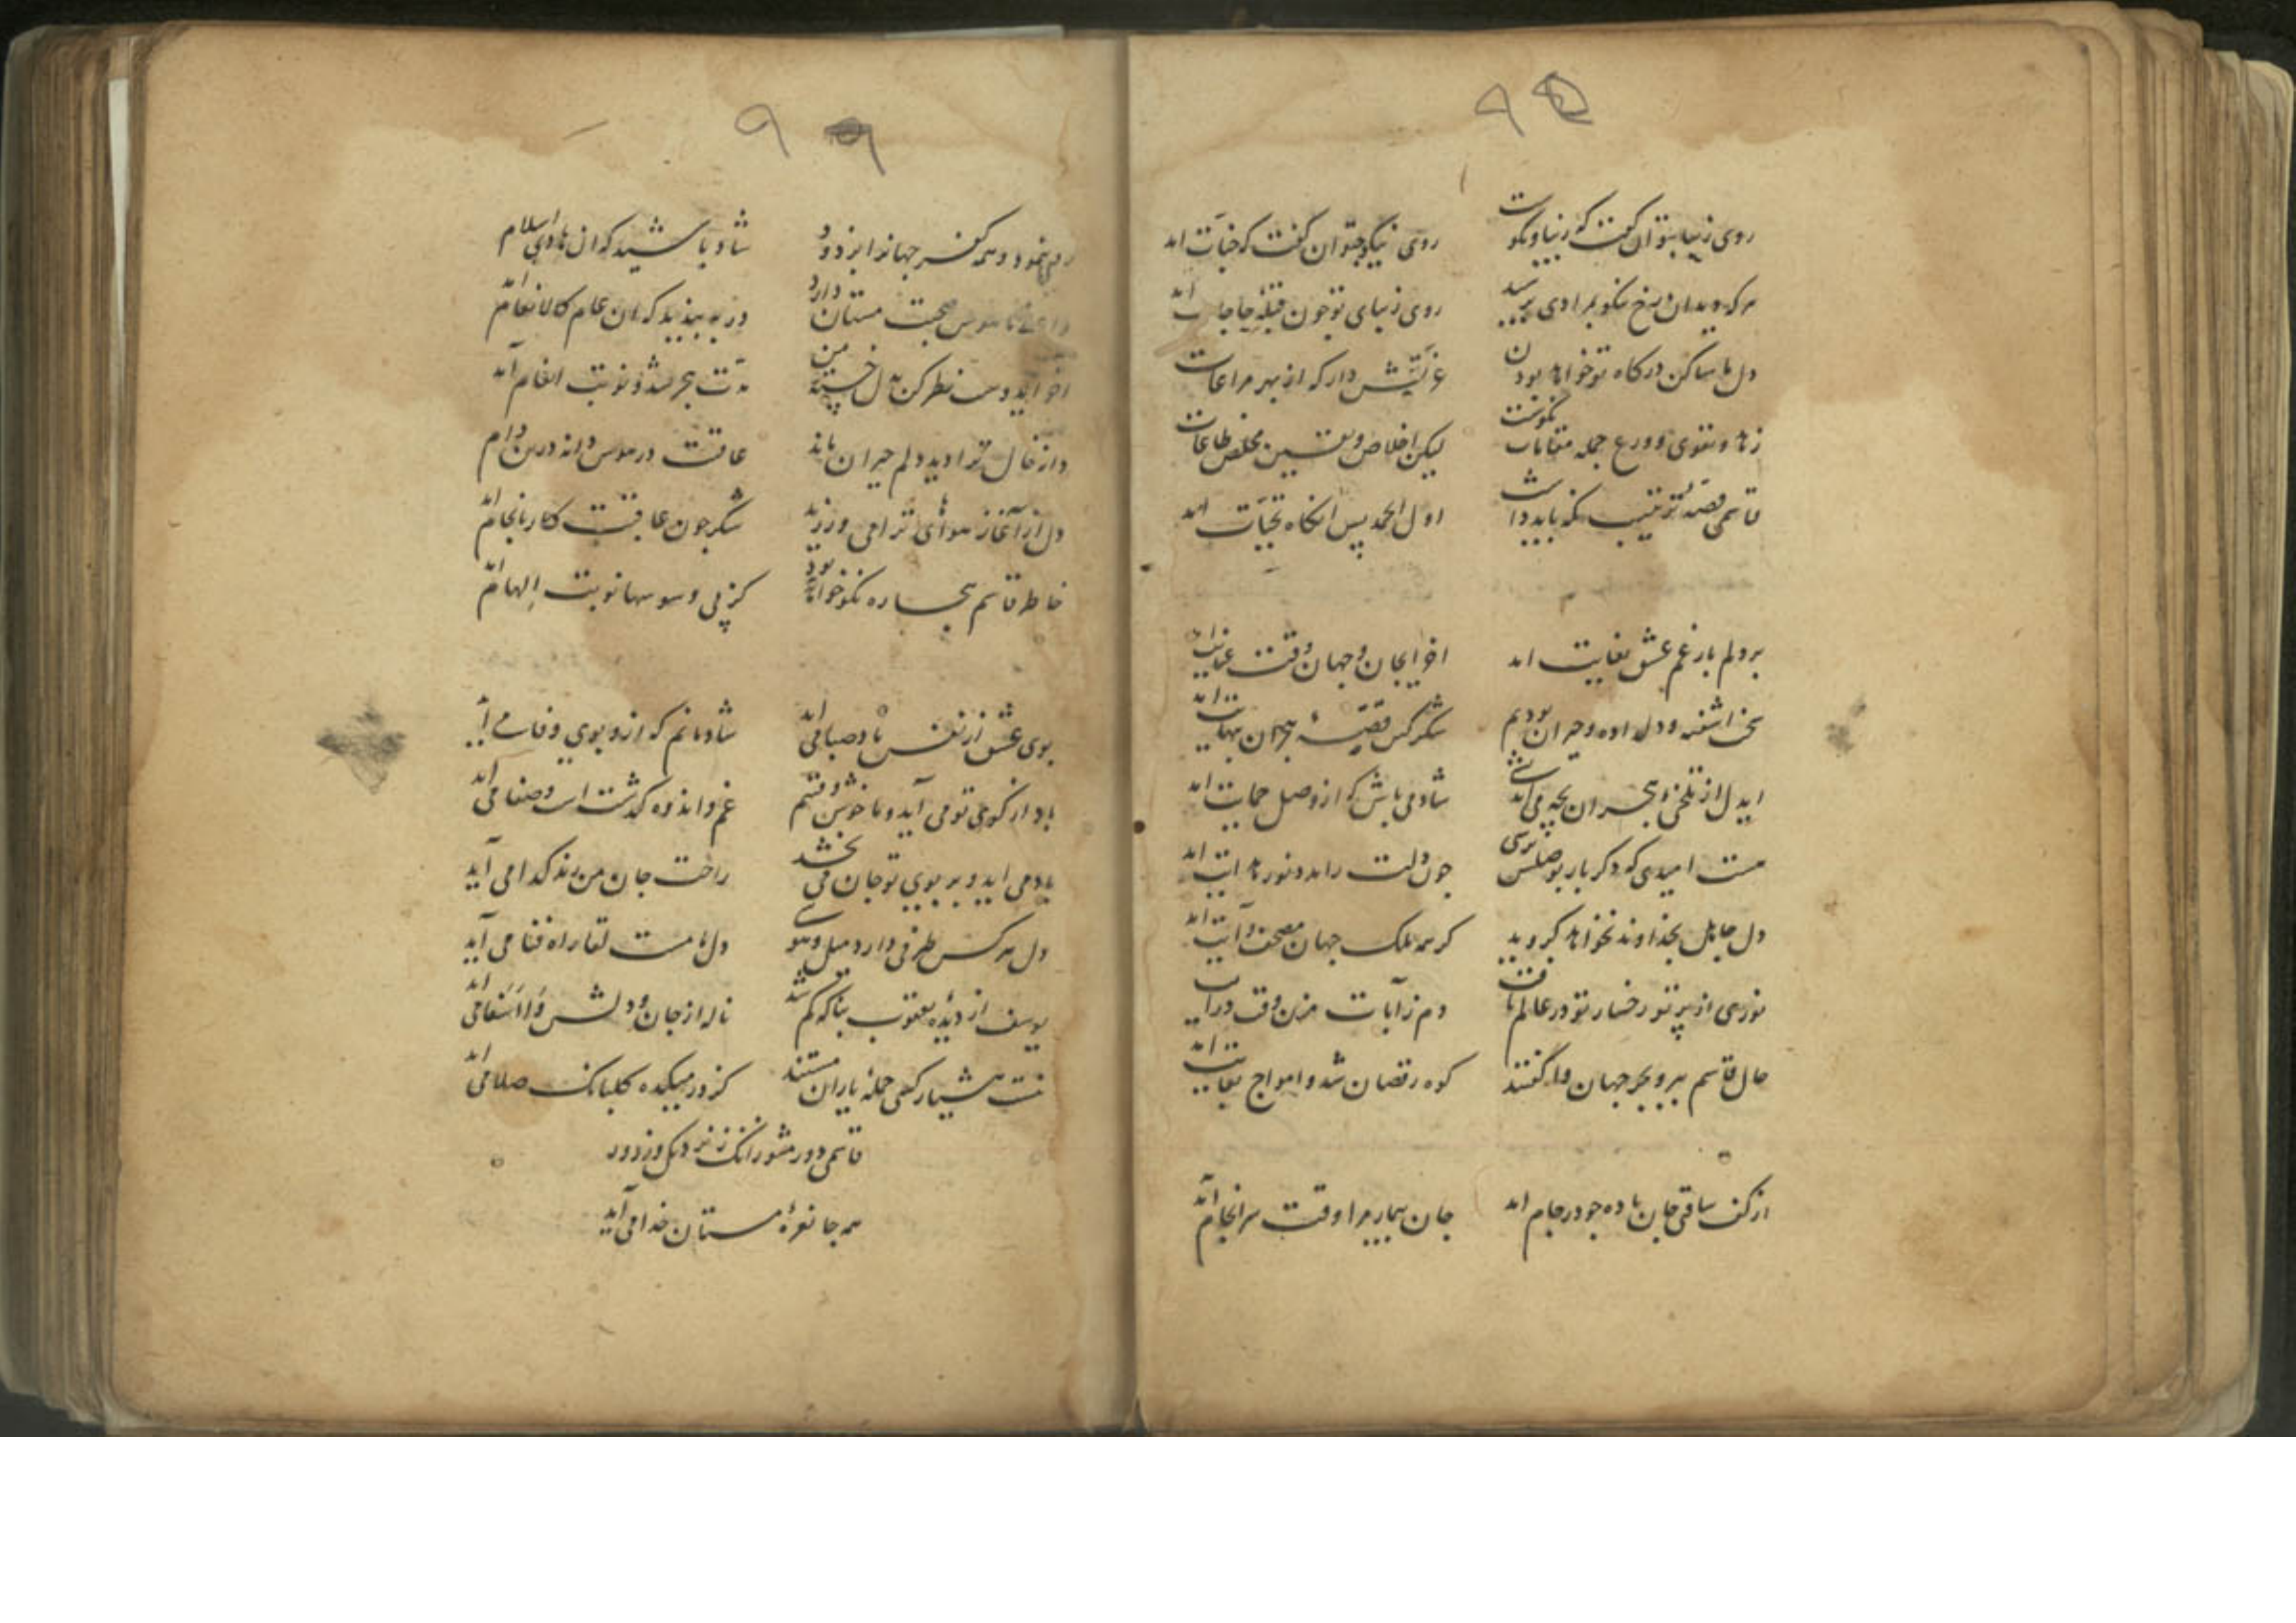 روی زیبا بتوان گفت که زیبا و نکوست روی نیکو بتوان گفت که جنات آمد
هر که دید آن رخ نیکو بمرادی برسید روی زیبای تو چون قبله حاجات آمد
دل ما ساکن درگاه تو خواهد بودن عزتش دار که از بهر مراعات آمد
زهد و تقوی و ورع جمله مقامات نکوست لیکن اخلاص و یقین مخلص طاعات
قاسمی قصه بترتیب نکه باید داشت اول الحمد پس آنگاه تحیات آمد
بر دلم بار غم عشق بغایت آمد آخر ای جان و جهان وقت عنایت آمد
سخت آشفته و دل داده و حیران بودیم شکر کین قصه هجران بنهایت آمد
ای دل از تلخی هجران بچه می شاد می باش که از وصل حمایت آمد
هست امیدی که دگر بار بوصلش برسی چون دلت را مدد نور هدایت آمد
دل جاهل بخداوند نخواهد گروید گر همه ملک جهان مصحف و آیت آمد
نوری از پرتو رخسار تو در عالم تافت دم ز آیات مزن وقت
حال قاسم ببر و بحر جهان واگفتند کوه رقصان شد و امواج آمد
از کف ساقی جان باده چو در جام آمد جان بیمار مرا وقت سرانجام آمد
نمود و همه کفر جهانرا بزدود شاد باشید که آن هادی اسلام
صحبت مستان دارد در ببندید که آن عام کالانعام آمد
آخر ای دوست نظر کن بدل خسته من مدت هجر شد و نوبت انعام آمد
خال ترا دید دلم حیران ماند عاقبت در هوس دانه درین دام
دل از آغاز هوای ترا می ورزید شکر چون عاقبت کار بانجام آمد
خاطر قاسم بیچاره نکو خواهد بود کز پی وسوسها نوبت الهام آمد
بوی عشق از نفس باد صبا می آید شادمانم که ازو بوی وفا می آید
باد از کوی تو می آید و ما خوش وقتیم غم و اندوه گذشت است و صفا می آید
باد می آید و بر بوی تو جان می بخشد راحت جان من رند گدا می آید
دل هر کس طرفی دارد میل و هوسی دل ما مست لقا راه فنا می آید
یوسف از دیده یعقوب بناگه گم شد ناله از جان و دلش وا اسفا می آید
نیست هشیار کسی جمله یاران مستند کز در میکده گلبانگ صلا می آید
قاسمی دور مشو زانکه ز نزدیک و ز دور
همه جا نعره مستان خدا می آید